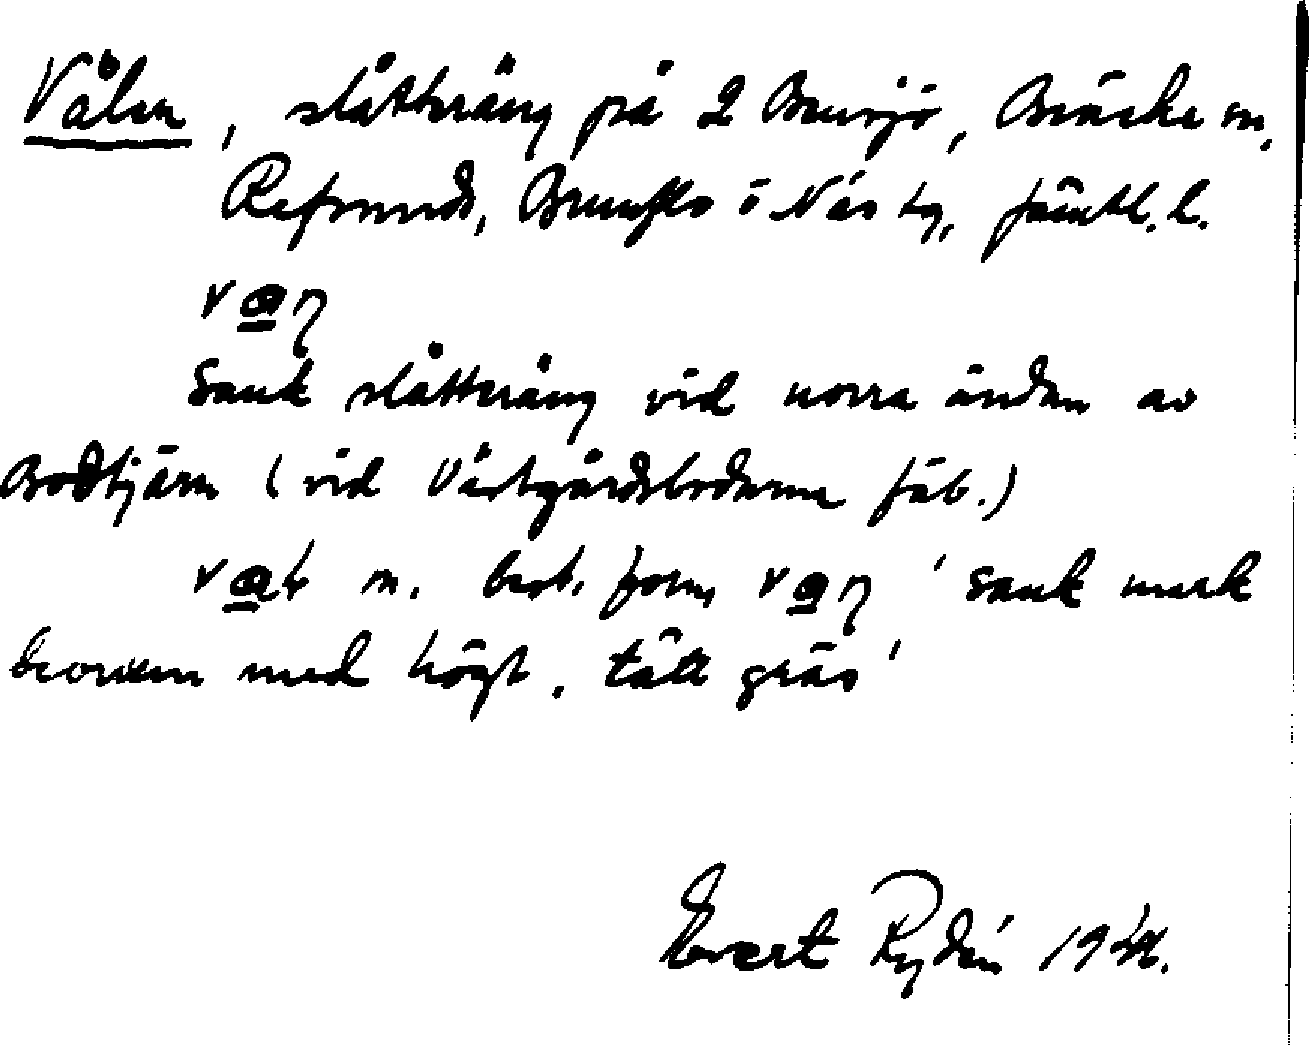 Vålen, slåtteräng på 2 Bensjö, Bräcke sn,
Refsunds, Brunflo o Näs tg, Jämtl. l.
Sank slåtteräng vid norra ändan av
Bodtjärn (vid Västgårdsbodarna fäb.)
m. best. form 'sank mark
bevuxen med högt, tätt gräs'
Evert Rydén 1944.